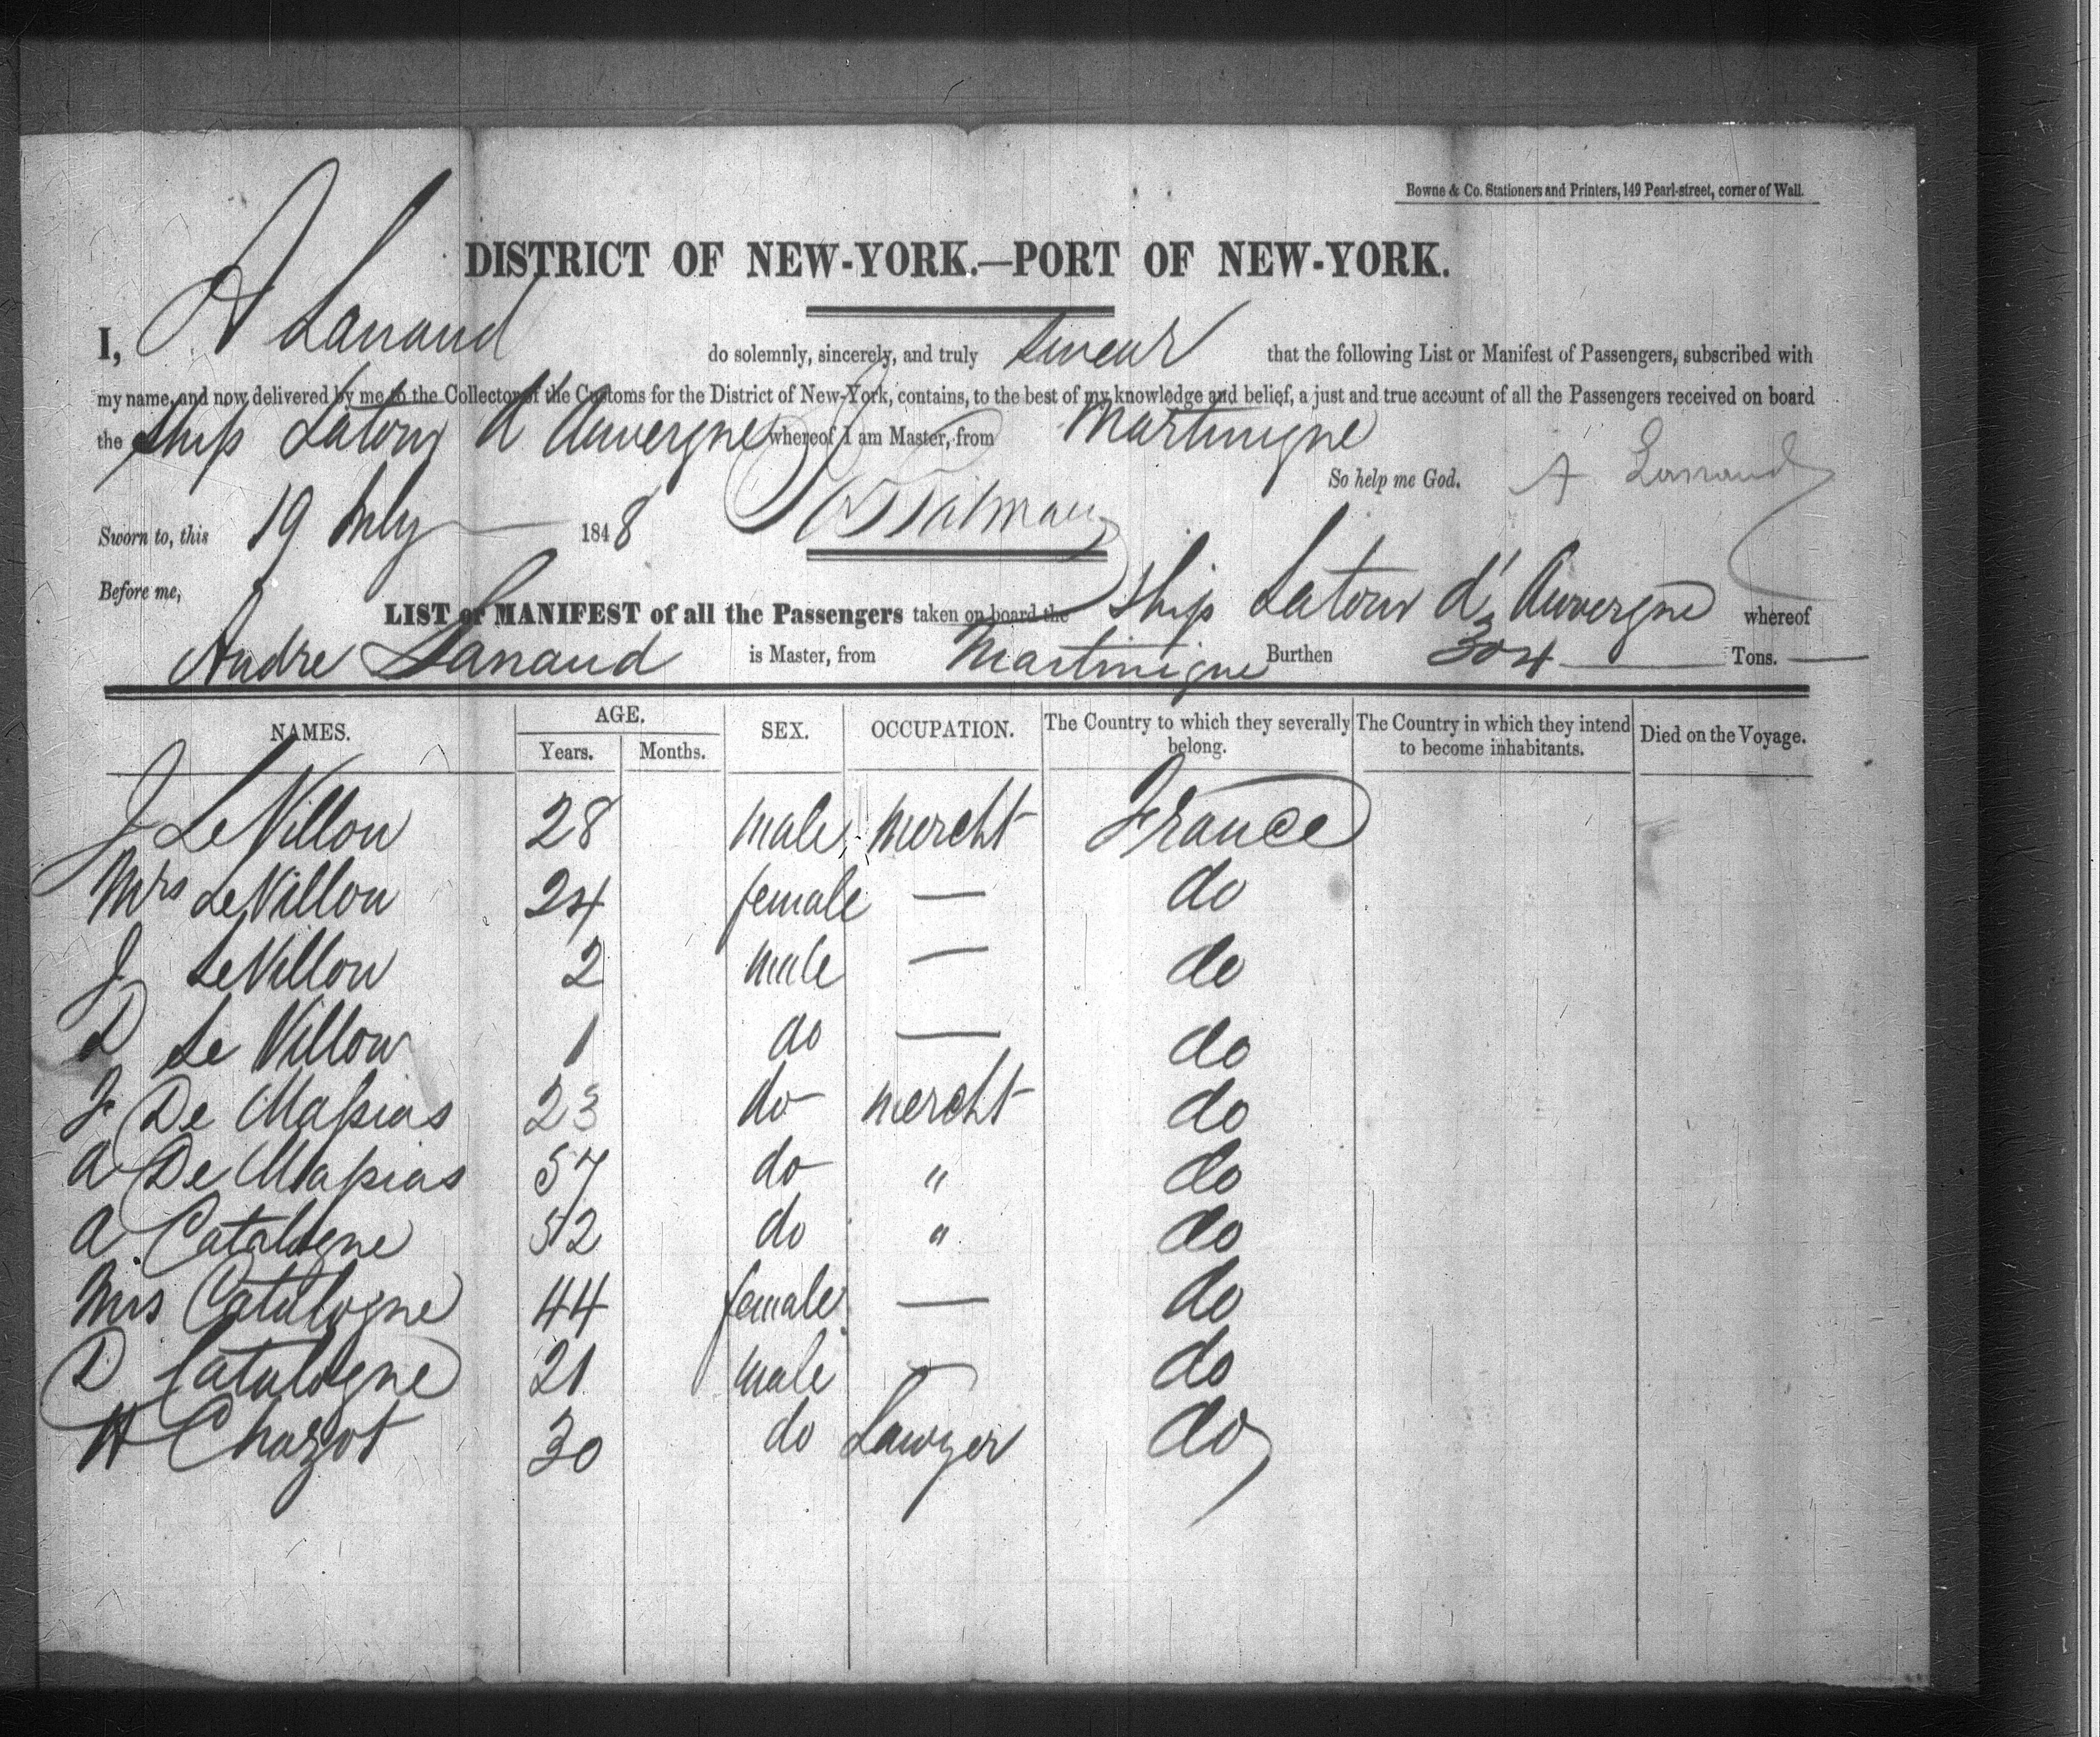 Bowne & Co. Stationers and Printers, 149 Pearl-street, corner of Wall.
DISTRICT OF NEW-YORK.—PORT OF NEW-YORK.
I, A Lanaud do solemnly, sincerely, and truly swear that the following List or Manifest of Passengers, subscribed with
my name, and now delivered by me to the Collector of the Customs for the District of New-York, contains, to the best of my knowledge and belief, a just and true account of all the Passengers received on board
the Ship Latour d'Auvergne whereof I am Master, from Martinique
So help me God. A Lanaud
Sworn to, this 19 July 1848
Before me,
LIST or MANIFEST of all the Passengers taken on board the Ship Latour d'Auvergne whereof
Andre Lanaud is Master, from Martinique Burthen 304 Tons.
NAMES. AGE. Years. Months. SEX. OCCUPATION. The Country to which they severally belong. The Country in which they intend to become inhabitants. Died on the Voyage.
J Le Villou 28 male mercht France
Mrs Le Villou 24 female — do
J Le Villou 2 male — do
D Le Villou 1 do — do
J De Massias 23 do mercht do
A De Massias 57 do " do
A Catalogne 52 do " do
Mrs Catalogne 44 female — do
D Catalogne 21 male — do
H Chazot 30 do Lawyer do